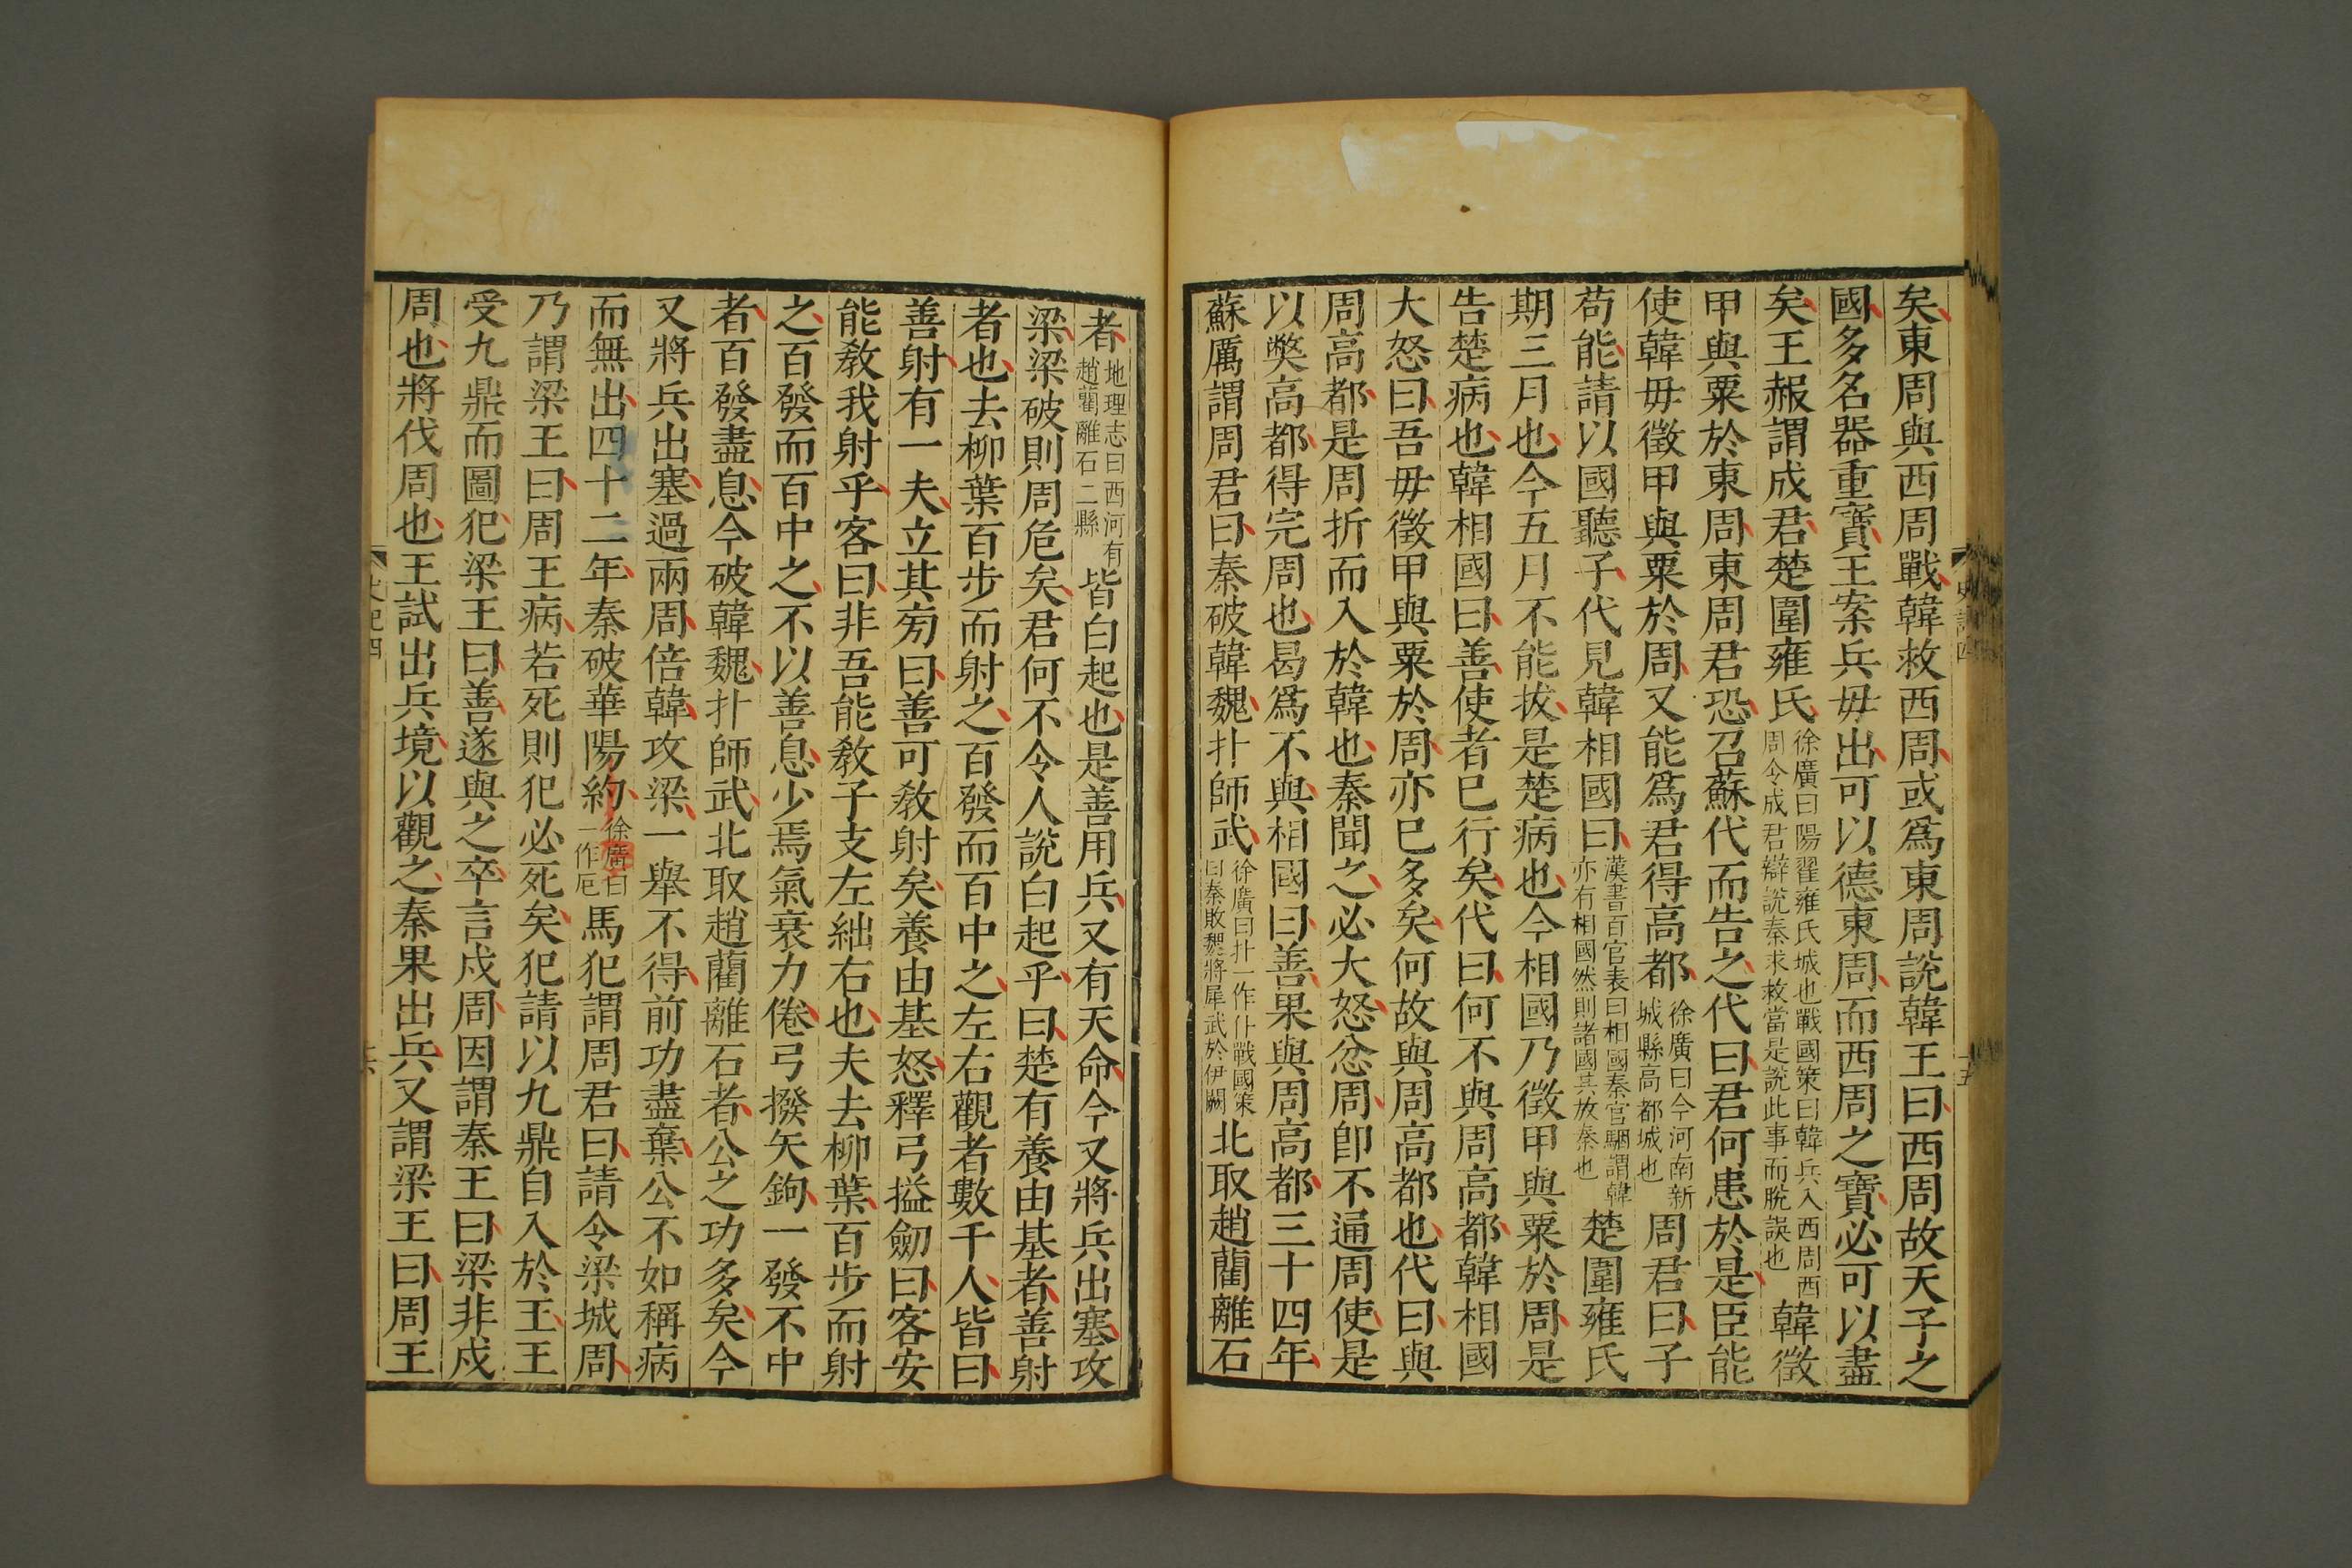 矣東周與西周戰韓救西周或爲東周說韓王曰西周故天子之
國多名器重寶王案兵毋出可以德東周而西周之寶必可以盡
矣王赧謂成君楚圍雍氏徐廣曰陽翟雍氏城也戰國策曰韓兵入西周西周令成君辯說秦求救當是說此事而脫誤也韓徵
甲與粟於東周東周君恐召蘇代而告之代曰君何患於是臣能
使韓毋徵甲與粟於周又能爲君得高都徐廣曰今河南新城縣高都城也周君曰子
苟能請以國聽子代見韓相國曰漢書百官表曰相國秦官駰謂韓亦有相國然則諸國共放秦也楚圍雍氏
期三月也今五月不能拔是楚病也今相國乃徵甲與粟於周是
告楚病也韓相國曰善使者已行矣代曰何不與周高都韓相國
大怒曰吾毋徵甲與粟於周亦已多矣何故與周高都也代曰與
周高都是周折而入於韓也秦聞之必大怒忿周卽不通周使是
以獘高都得完周也曷爲不與相國曰善果與周高都三十四年
蘇厲謂周君曰秦破韓魏扑師武徐廣曰扑一作仆戰國策曰秦敗魏將犀武於伊闕北取趙藺離石
者地理志曰西河有趙藺離石二縣皆白起也是善用兵又有天命今又將兵出塞攻
梁梁破則周危矣君何不令人說白起乎曰楚有養由基者善射
者也去柳葉百步而射之百發而百中之左右觀者數千人皆曰
善射有一夫立其旁曰善可教射矣養由基怒釋弓搤劒曰客安
能教我射乎客曰非吾能教子支左絀右也夫去柳葉百步而射
之百發而百中之不以善息少焉氣衰力倦弓撥矢鉤一發不中
者百發盡息今破韓魏扑師武北取趙藺離石者公之功多矣今
又將兵出塞過兩周倍韓攻梁一舉不得前功盡棄公不如稱病
而無出四十二年秦破華陽約徐廣曰一作厄馬犯謂周君曰請令梁城周
乃謂梁王曰周王病若死則犯必死矣犯請以九鼎自入於王王
受九鼎而圖犯梁王曰善遂與之卒言戍周因謂秦王曰梁非戍
周也將伐周也王試出兵境以觀之秦果出兵又謂梁王曰周王